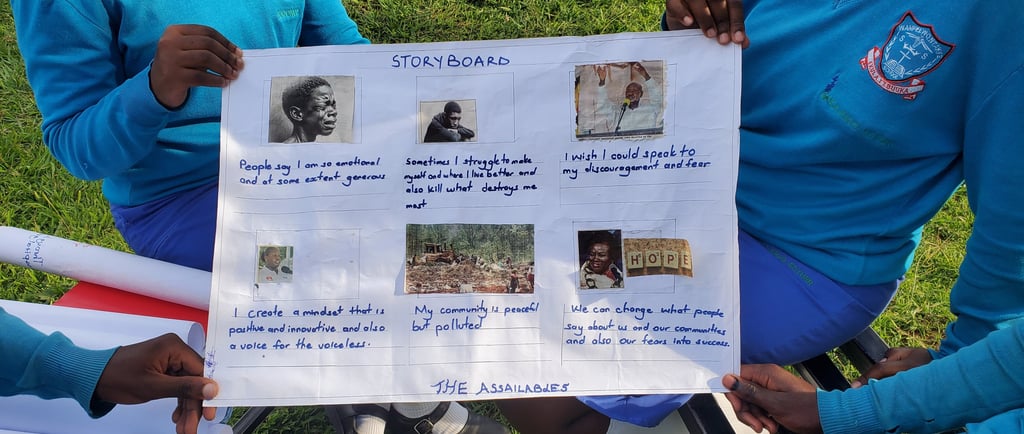 STORYBOARD
People say I am so emotional
and at some extent generous
Sometimes I struggle to make
myself and where I live better and
also kill what destroys me
most
I wish I could speak to
my discouragement and fear
HOPE
I create a mindset that is
positive and innovative and also
a voice for the voiceless.
My community is peaceful
but polluted
We can change what people
say about us and our communities
and also our fears into success.
THE ASSAILABLES